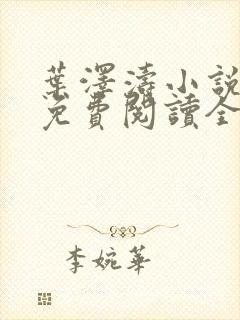 葉澤濤小說
免費閱讀全
李婉華